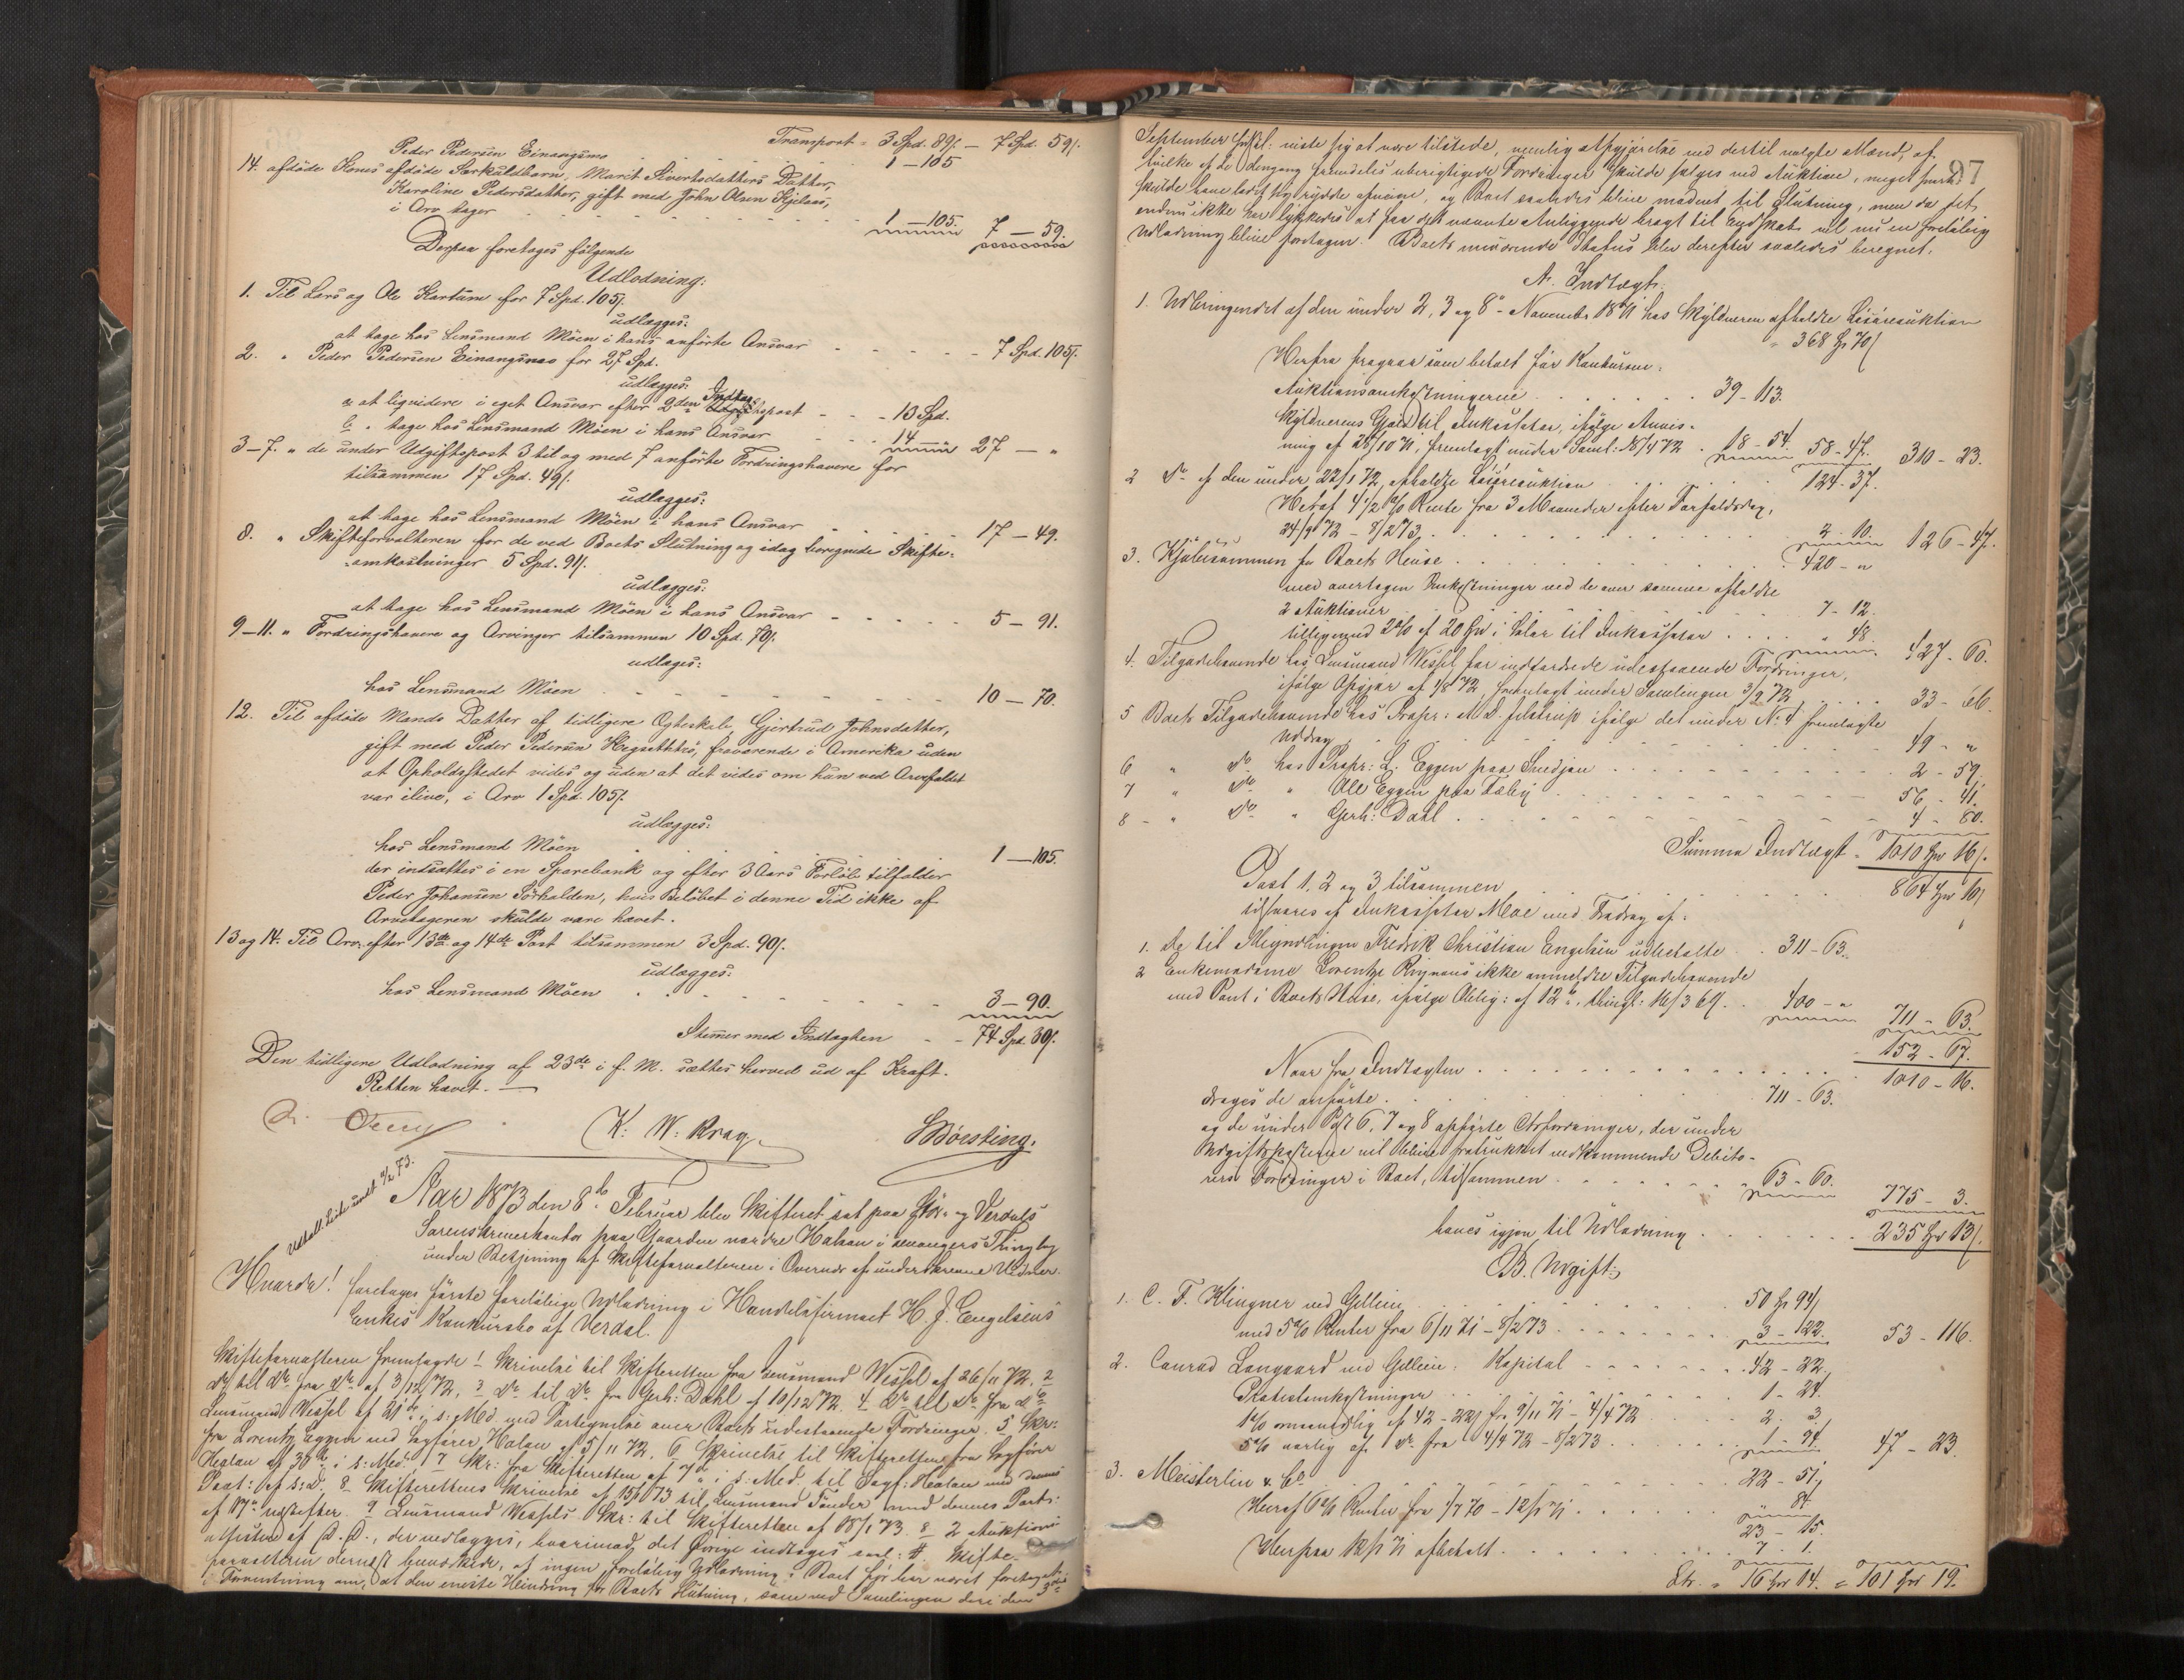 Transport = 3 Spd. 89ẞ. — 7 Spd. 59ẞ.
Peder Pedersen Einangsmo 1 — 105
14. afdøde Kones afdøde Særkuldbarn, Marit Sivertsdatters Datter,
Karoline Pedersdatter, gift med John Olsen Kjelaas,
i Arv tager 1 — 105. 7 — 59.
Derpaa foretages følgende
Udlodning:
1. Til Lars og Ole Kartum for 7 Spd. 105ẞ.
udlægges:
at tage hos Lensmand Möen i hans anførte Ansvar 7 Spd. 105ẞ.
2. " Peder Pedersen Einangsmo for 27 Spd.
udlægges:
a at liquidere i eget Ansvar efter 2den Indtægtspost 13 Spd.
b " tage hos Lensmand Möen i hans Ansvar 14 27 — "
3—7. " de under Udgiftspost 3 til og med 7 anførte Fordringshavere for
tilsammen 17 Spd. 49ẞ.
udlægges:
at tage hos Lensmand Möen i hans Ansvar 17 — 49.
8. " Skifteforvalteren for de ved Boets Slutning og idag beregnede Skifte-
omkostninger 5 Spd. 91ẞ.
udlægges:
at tage hos Lensmand Möen i hans Ansvar 5 — 91.
9—11. " Fordringshavere og Arvinger tilsammen 10 Spd. 70ẞ.
udlæges:
hos Lensmand Möen 10 — 70.
12. Til afdöde Mands Datter af tidligere Ægteskab, Gjertrud Johnsdatter,
gift med Peder Pedersen, fraværende i Amerika uden
at Opholdsstedet vides og uden at det vides om hun ved Arvefaldet
var ilive, i Arv 1 Spd. 105ẞ.
udlægges:
hos Lensmand Möen 1 — 105.
der indsættes i en Sparebank og efter 3 Aars Forløb tilfalder
Peder Johansen Sörhalden, hvis Beløbet i denne Tid ikke af
Arvetageren skulde være hævet.
13 og 14. Til Arv. efter 13de og 14de Post tilsammen 3 Spd. 90ẞ.
udlægges:
hos Lensmand Möen 3 — 90.
Stemer med Indtægten 74 Spd. 30ẞ.
Den tidligere Udlodning af 23de i f. M. sættes herved ud af Kraft.
Retten hævet. —
K. W. Krag. SBörsting.
Aar 1873 den 8de Februar blev Skifteret sat paa Stör- og Verdals
Sorenskriverkontor paa Gaarden nordre Halsan i Levangers Thinglag
under Betjening af Skifteforvalteren i Overvær af underskrevne Vidner.
Hvorda! foretages første foreløbige Udlodning i Handelsfirmaet H. J. Engelsens
Enkes Konkursbo af Verdal.
Skifteforvalteren fremlagde 1 Skrivelse til Skifteretten fra Lensmand Wessel af 26/11 72. 2
do til do fra do af 3/12 72, 3 do til do fra Gerh: Dahl af 10/12 72. 4 do til do fra do
Lensmand Wessel af 21de s: Md. med Fortegnelse over Boets udestaaende Fordringer. 5 Skr:
fra Lorents Eggen ved Sagfører Halan af 5/11 72. 6 Skrivelse til Skifteretten fra Sagfører
Healan af 30te i s: Md. 7 Skr: fra Skifteretten af 7de i s: Md. til Sagf: Healan med dennes
Paat: af s: D. 8 Skifterettens Skrivelse af 15/1 73 til Lensmand Tönder med dennes Paat:
af 17de næstefter. 9 Lensmand Wessels Skr: til Skifteretten af 18/1 73. & 2 Auktions
der vedlægges, hvorimod det Øvrige indtages Skifte-
forvalteren dernæst bemærkede, at ingen foreløbig Udlodning i Boet før har været foretaget
i Formodning om, at den eneste Hindring for Boets Slutning, som ved Samlingen den 3die
97
September skulde vise sig at være tilstede, nemlig Opgjørelse ved dertil valgte Mænd, af
hvilke af de dengang fremdeles uberigtigede Fordringer skulde sælges ved Auktion, meget snart
skulde have ladet sig rydde afveien, og Boet saaledes blive modent til Slutning, men da det
endnu ikke har lykkedes at faa det nævnte Anliggende bragt til Endskab, vil nu en foreløbig
Udlodning blive foretagen. Boets nuværende Status blev derefter saaledes beregnet.
A. Indtægt.
1. Udbringendet af den under 2, 3 og 8de November 1871 hos Skyldneren afholdte Løsøreauktion
368 Spd 70ẞ
Herfra fragaar som betalt før Konkursen:
Auktionsomkostningerne 39 - 113.
Skyldnerens Gjæld til Inkassator, ifølge Anvis-
ning af 28/10 71, fremlagt under Saml: 18/4 72 18 - 54. 58 - 47. 310 - 23.
2 do af den under 22/1 72 afholdte Løsøreauktion 124 - 37.
Heraf 4 1/2 % Rente fra 3 Maaneder efter Forfaldsdag,
24/9 72 - 8/2 73 2 - 10. 126 - 47.
3. Kjøbesummen for Boets Huse 420 - "
med overtagen Omkostninger ved de over samme afholdte
2 Auktioner 7 - 12.
tilligemed 2% af 20 Spd i Salær til Inkassator " 48. 427 - 60.
4. Tilgodehavende hos Lensmand Wessel for inddrevede udestaaende Fordringer,
ifølge Opgjør af 1/8 72, fremlagt under Samlingen 3/9 72 33 - 66.
5 Boets Tilgodehavende hos Propr: M. S. Jelstrup ifølge det under No. 4 fremlagte
Uddrag 49 - "
6 " do hos Propr: L. Eggen paa Smedjan 2 - 59.
7 " do " Ole Eggen paa Fæby 56 - 41.
8 - " do " Gerh: Dahl 4 - 80.
Summa Indtægt = 1010 Spd 16ẞ.
Post 1, 2 og 3 tilsammen 864 Spd 10ẞ
tilsvares af Inkassator Moe med Fradrag af:
1. de til Myndlingen Fredrik Christian Engelsen udbetalte 311 - 63.
2 Enkemadame Lorentze Ringnæs ikke anmeldte Tilgodehavende
med Pant i Boets Huse, ifølge Oblig: af 12te, thingl: 16/3 69. 400 - " 711 - 63.
152 - 67.
Naar fra Indtægten 1010 - 16.
drages de anførte 711 - 63.
og de under Post 6, 7 og 8 opførte Udfordringer, der under
Udgiftsposterne vil blive fratrukket vedkommende Debito-
rers Fordringer i Boet, tilsammen 63 - 60. 775 - 3.
haves igjen til Udlodning 235 Spd 13ẞ.
B. Udgift:
1. C. F. Klingner ved Gellein 50 Spd 94ẞ
med 5% Renter fra 6/11 71 - 8/2 73 3 - 122. 53 - 116.
2. Conrad Langaard ved Gellein: Kapital 42 - 22.
Protestomkostninger 1 - 24.
1% maanedlig af 42 - 22ẞ fra 9/11 71 - 4/4 72 2 - 3.
5% aarlig af do fra 4/4 72 - 8/2 73 1 - 94. 47 - 23.
3. Meisterlin & Co. 22 - 51.
Heraf 6% Renter fra 1/7 70 - 12/1 71 " 84.
23 - 15.
Herpaa 12/1 71 afbetalt 7 - 1.
Ltr. = 16 Spd 14. = 101 Spd 19.